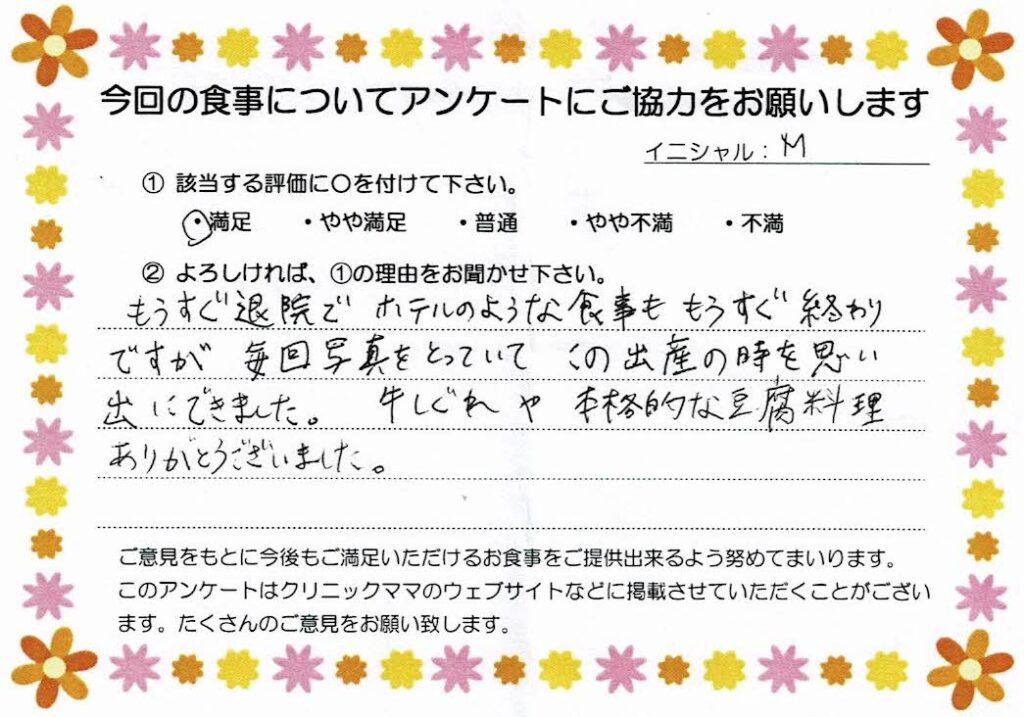 今回の食事についてアンケートにご協力をお願いします
イニシャル：M
① 該当する評価に〇を付けて下さい。
・満足 ・やや満足 ・普通 ・やや不満 ・不満
② よろしければ、①の理由をお聞かせ下さい。
もうすぐ退院で ホテルのような食事も もうすぐ 終わり
ですが 毎回写真をとっていて この出産の時を思い
出にできました。 牛しぐれ や 本格的な豆腐料理
ありがとうございました。
ご意見をもとに今後もご満足いただけるお食事をご提供出来るよう努めてまいります。
このアンケートはクリニックママのウェブサイトなどに掲載させていただくことがござい
ます。たくさんのご意見をお願い致します。